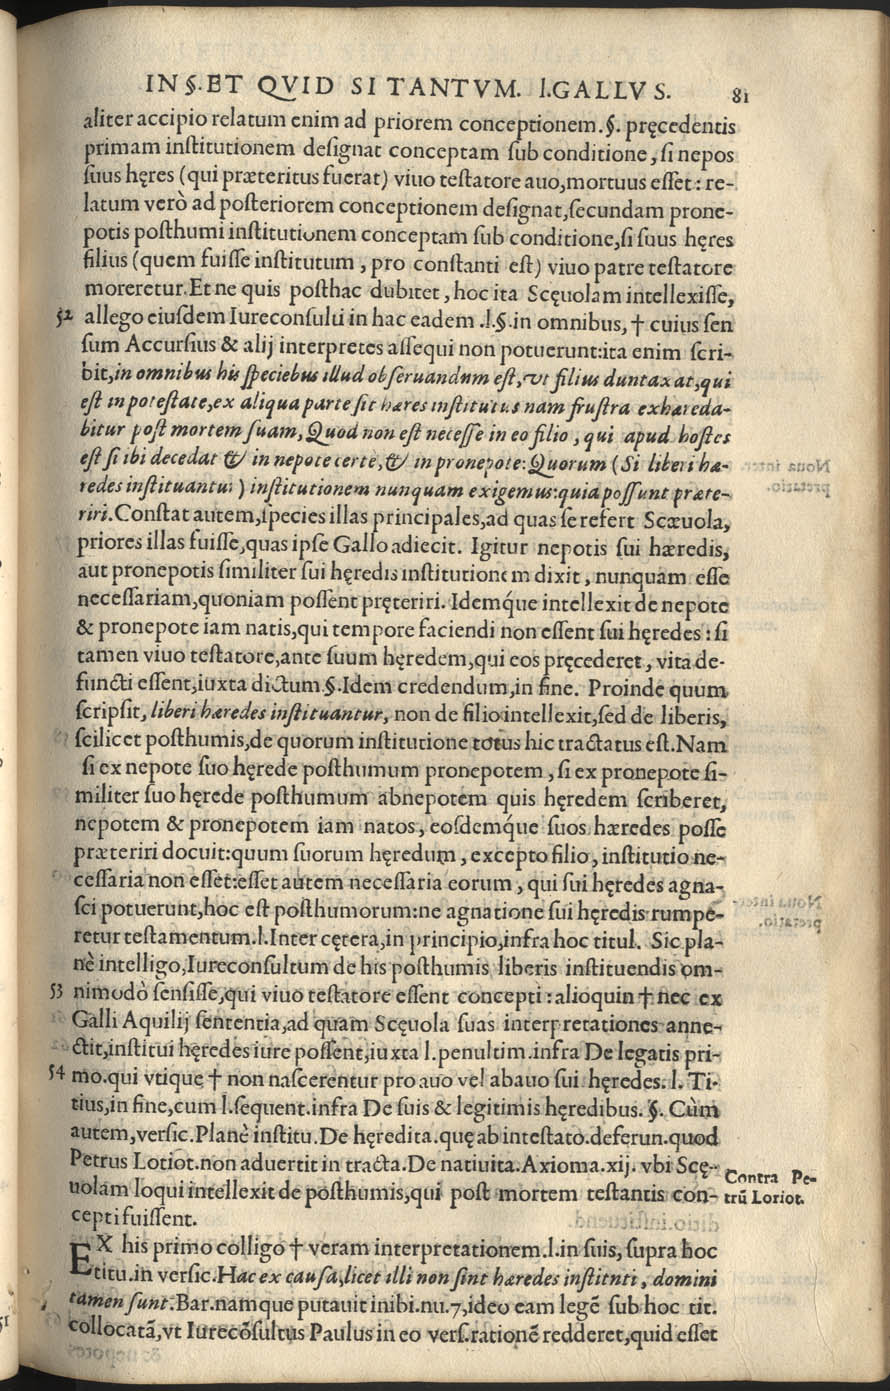 IN §.ET QVID SI TANTVM. l.GALLVS. 81
aliter accipio relatum enim ad priorem conceptionem.§. pręcedentis
primam institutionem designat conceptam sub conditione, si nepos
suus hęres (qui præteritus fuerat) viuo testatore auo,mortuus esset: re-
latum verò ad posteriorem conceptionem designat,secundam prone-
potis posthumi institutionem conceptam sub conditione,si suus hęres
filius (quem fuisse institutum, pro constanti est) viuo patre testatore
moreretur.Et ne quis posthac dubitet, hoc ita Scęuolam intellexisse,
52 allego eiusdem Iureconsulti in hac eadem .l.§.in omnibus, † cuius sen
sum Accursius & alij interpretes assequi non potuerunt:ita enim scri-
bit,in omnibus his speciebus illud obseruandum est,vt filius duntaxat,qui
est in potestate,ex aliqua parte sit hæres institutus nam frustra exhæreda-
bitur post mortem suam, Quod non est necesse in eo filio, qui apud hostes
est si ibi decedat & in nepote certe,& in pronepote:Quorum (Si liberi hæ-
redes instituantur) institutionem nunquam exigemus:quia possunt præte-
riri.Constat autem,species illas principales,ad quas se refert Scæuola,
priores illas fuisse,quas ipse Gallo adiecit. Igitur nepotis sui hæredis,
aut pronepotis similiter sui hęredis institutionem dixit, nunquam esse
necessariam,quoniam possent pręteriri. Idemq́ue intellexit de nepote
& pronepote iam natis,qui tempore faciendi non essent sui hęredes: si
tamen viuo testatore,ante suum hęredem,qui eos pręcederet, vita de-
functi essent,iuxta dictum.§.Idem credendum,in fine. Proinde quum
scripsit, liberi hæredes instituantur, non de filio intellexit,sed de liberis,
scilicet posthumis,de quorum institutione totus hic tractatus est.Nam
si ex nepote suo hęrede posthumum pronepotem, si ex pronepote si-
militer suo hęrede posthumum abnepotem quis hęredem scriberet,
nepotem & pronepotem iam natos, eosdemq́ue suos hæredes posse
præteriri docuit:quum suorum hęredum, excepto filio, institutio ne-
cessaria non esset:esset autem necessaria eorum, qui sui hęredes agna-
sci potuerunt,hoc est posthumorum:ne agnatione sui hęredis rumpe-
retur testamentum.l.Inter cętera,in principio,infra hoc titul. Sic pla-
nè intelligo,Iureconsultum de his posthumis liberis instituendis om-
53 nimodò sensisse,qui viuo testatore essent concepti: alioquin † nec ex
Galli Aquilij sententia,ad quam Scęuola suas interpretationes anne-
ctit,institui hęredes iure possent,iuxta l.penultim.infra De legatis pri-
54 mo.qui vtique † non nascerentur pro auo vel abauo sui hęredes. l. Ti-
tius,in fine,cum l.sequent.infra De suis & legitimis hęredibus. §. Cùm
autem,versic.Planè institu.De hęredita.quę ab intestato.deferun.quod
Petrus Loriot.non aduertit in tracta.De natiuita.Axioma.xij. vbi Scę-
uolam loqui intellexit de posthumis,qui post mortem testantis con-
cepti fuissent.
Contra Pe-
trū Loriot.
EX his primo colligo † veram interpretationem.l.in suis, supra hoc
titu.in versic.Hac ex causa,licet illi non sint hæredes instituti, domini
tamen sunt.Bar.namque putauit inibi.nu.7,ideo eam legē sub hoc tit.
collocatā,vt Iurecōsultus Paulus in eo vers.rationē redderet,quid esset